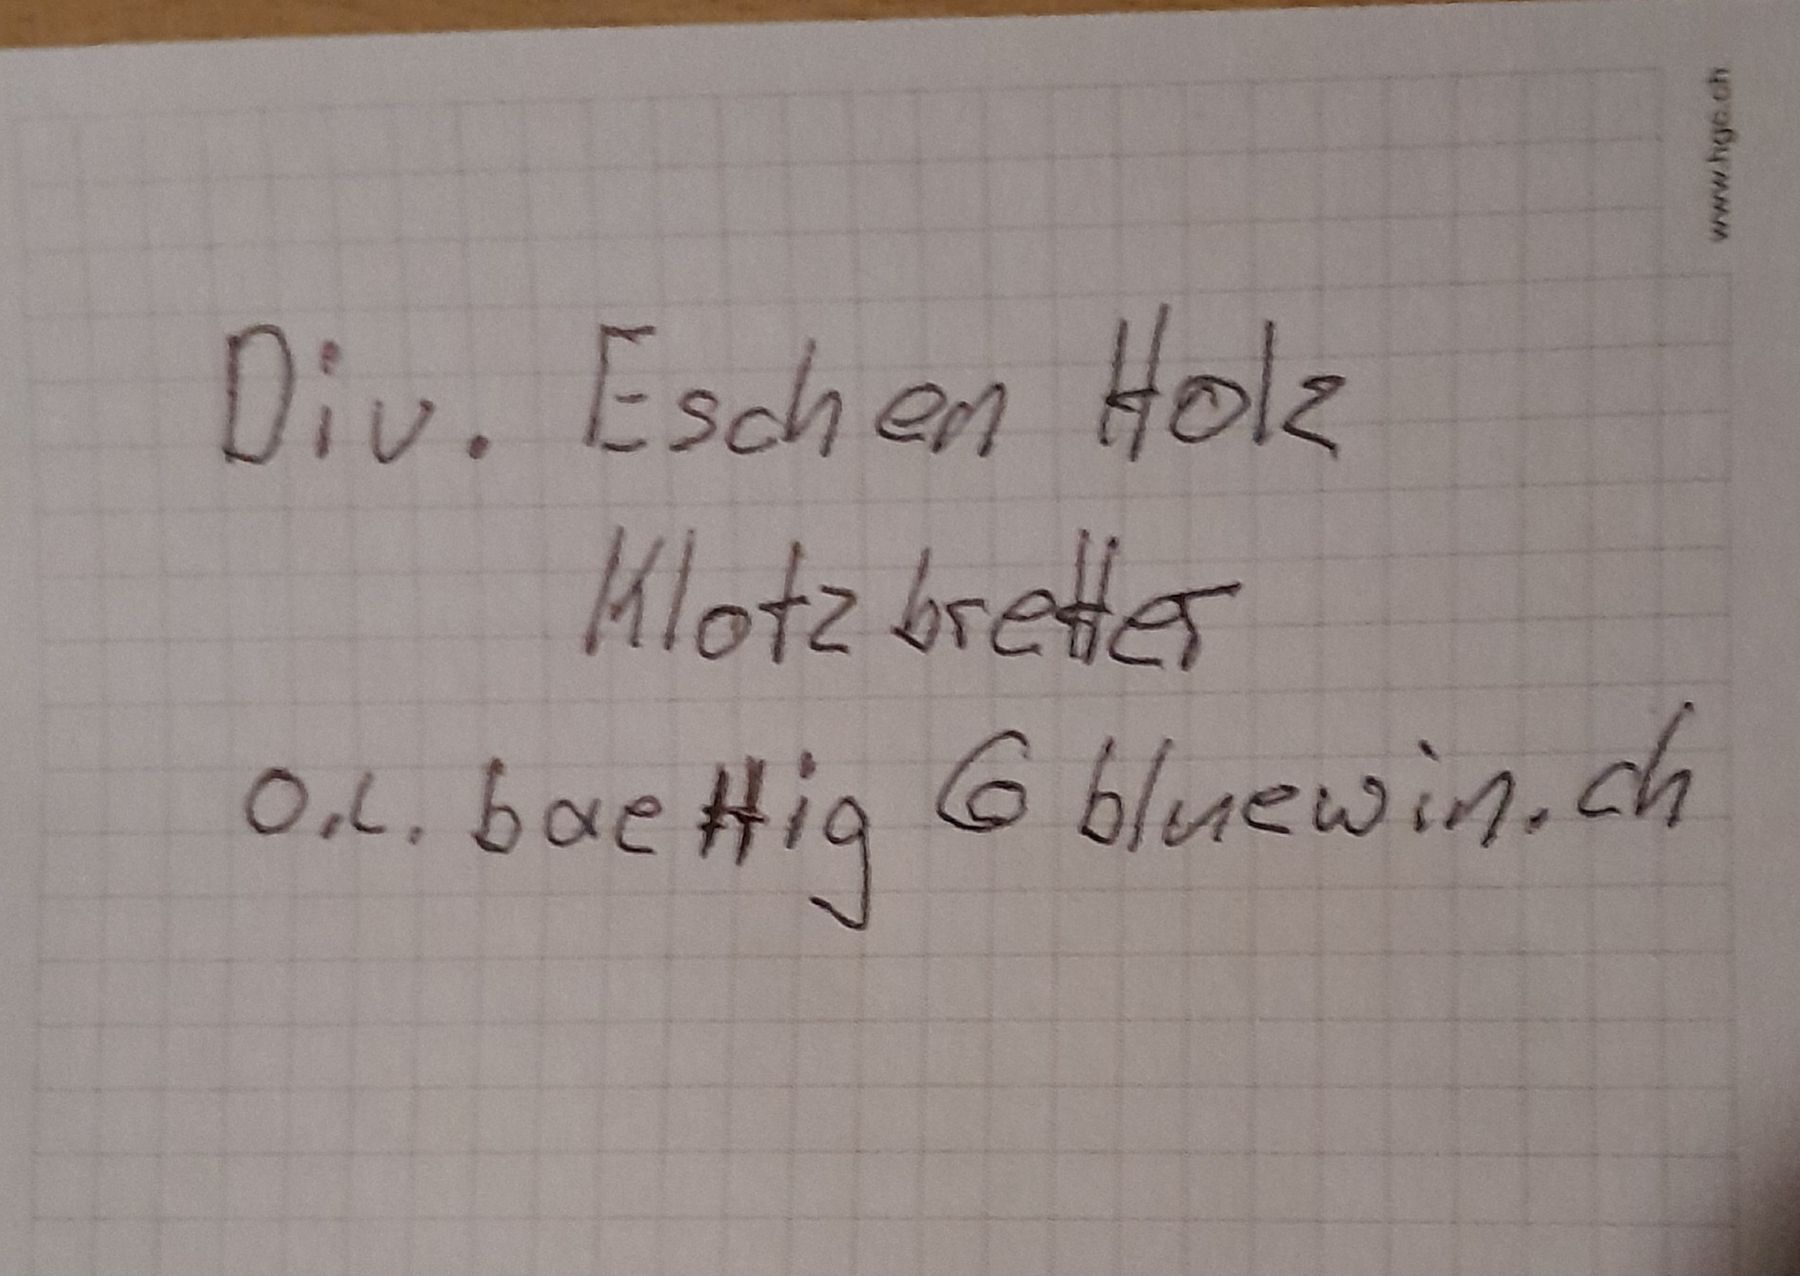 www.hgc.ch
Div. Eschen Holz
Klotzbretter
o.l. baettig @ bluewin.ch